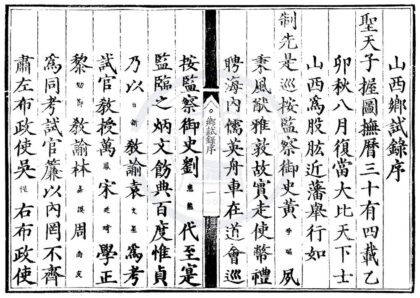 山西鄉試錄序
聖天子握圖撫曆三十有四載乙
卯秋八月復當大比天下士
山西爲股肱近藩舉行如
制先是巡按監察御史黃夙
秉風猷雅敦故實走使幣禮
聘海內儒英舟車在道會巡
鄉試錄序
一
按監察御史劉代至寔
監臨之炳文飭典百度惟貞
乃以教諭袁爲考
試官教授萬宋學正
黎教諭林周
爲同考試官簾以內罔不齊
肅左布政使吳右布政使